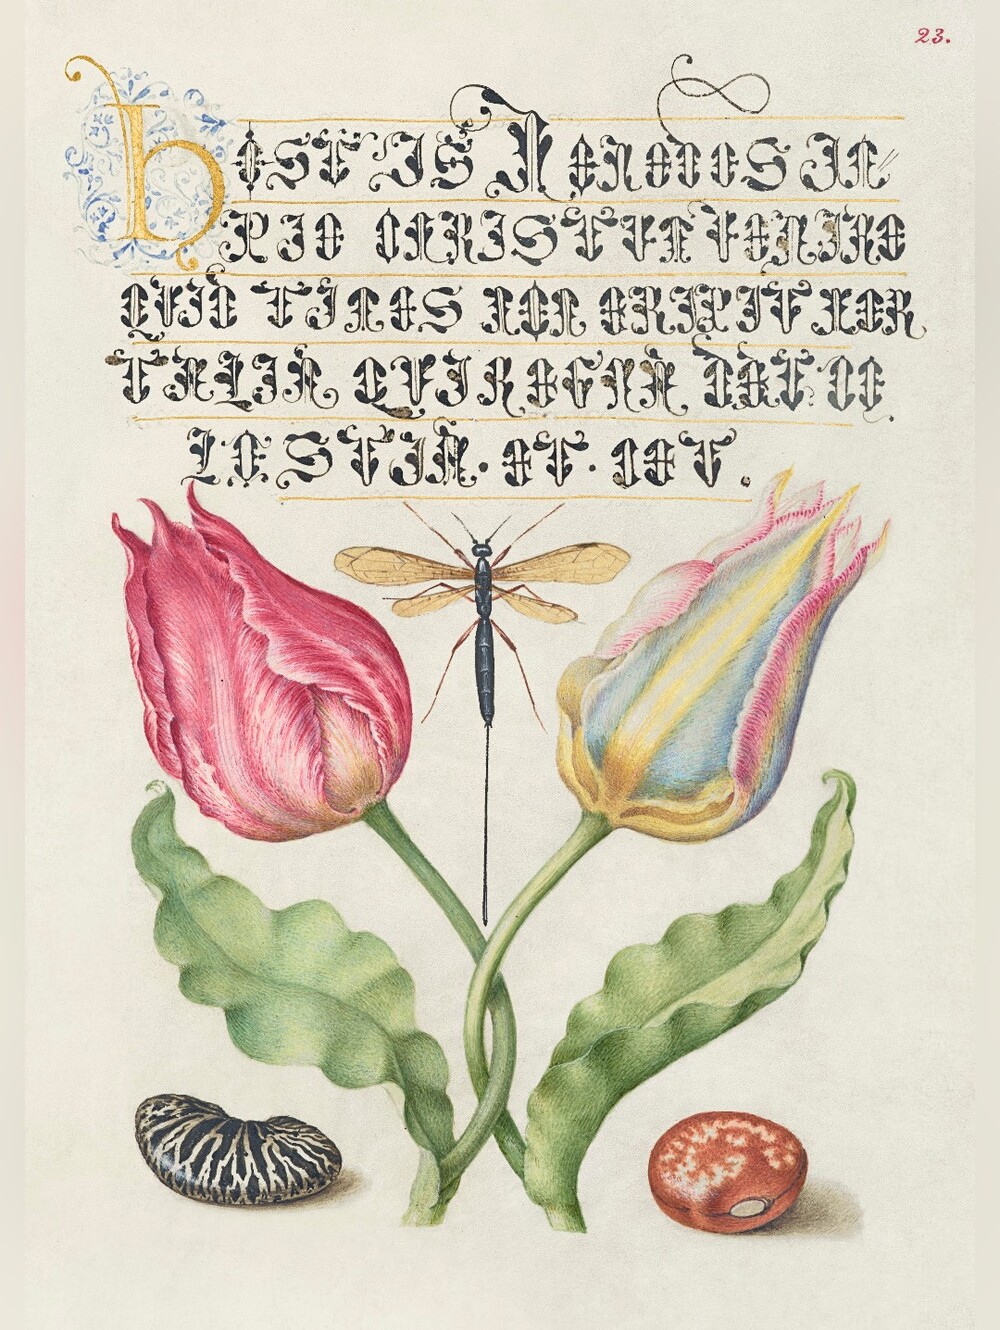 23.
HOSTIS HERODES IM
PIE CHRISTVM VENIRE
QVID TIMES NON ERIPIT MOR
TALIA QVI REGNA DAT CE
LESTIA. ET. CET.